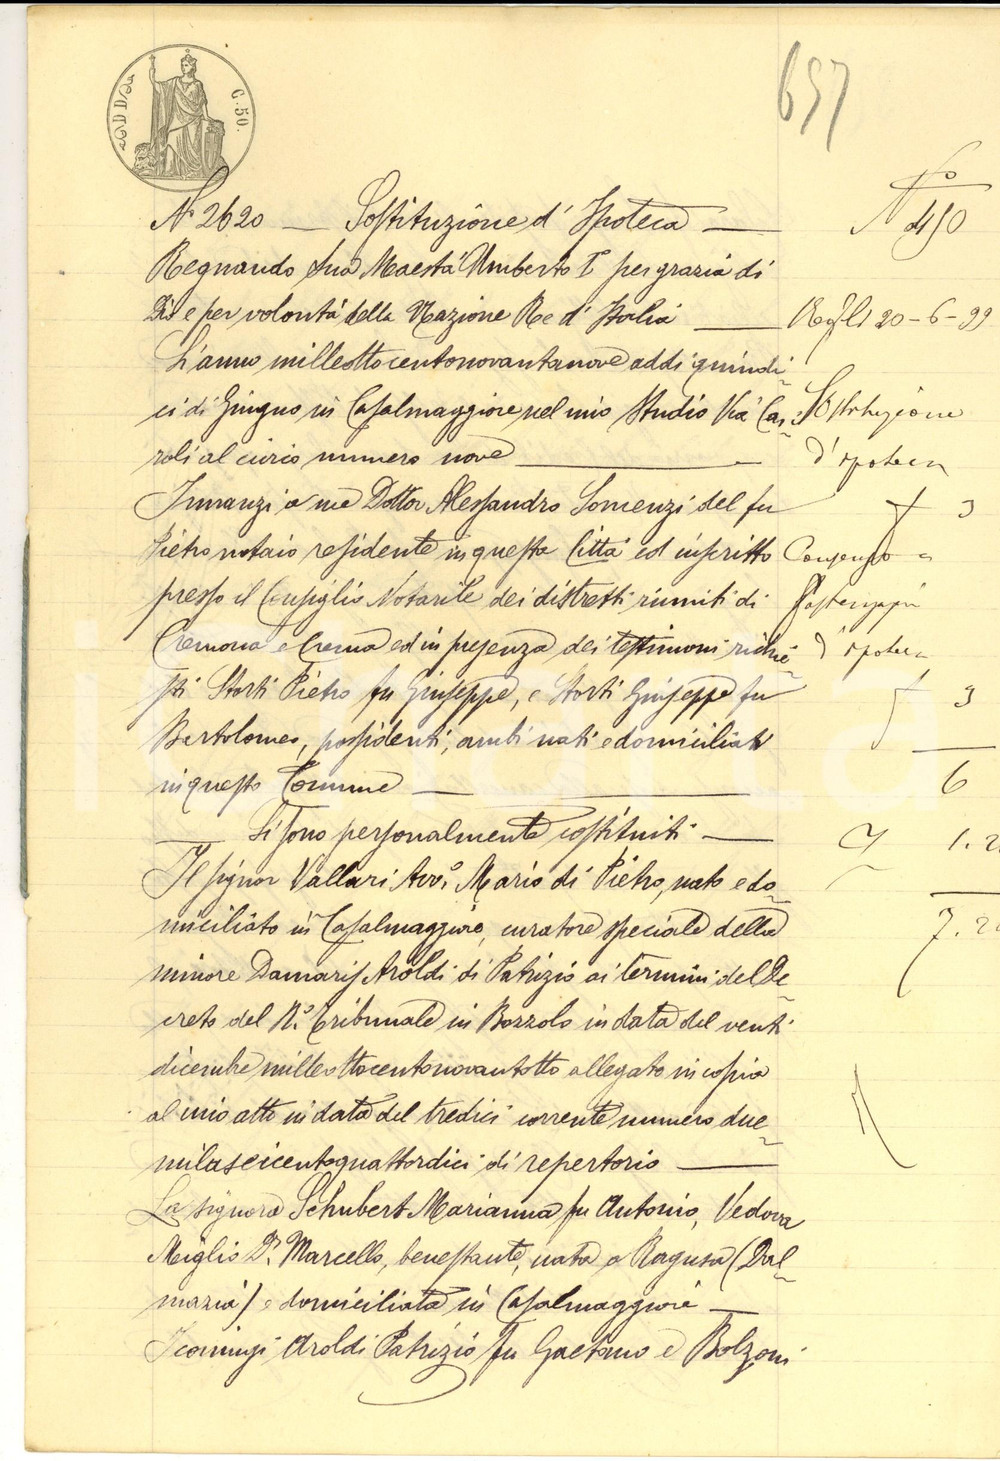 C. 50.
657
N° 2620 — Sostituzione d' Ipoteca —
N°
Regnando Sua Maestà Umberto I° per grazia di
Dio e per volontà della Nazione Re d' Italia —
20-6-99
L'anno milleottocentonovantanove addì quindi-
ci di Giugno in Casalmaggiore nel mio Studio Via Cai-
Sostituzione
roli al civico numero nove —
d'ipoteca
Innanzi a me Dottor Alessandro Somenzi del fu
3
Pietro notaio residente in questa Città ed inscritto
Consenso a
presso il Consiglio Notarile dei distretti riuniti di
Cremona e Crema ed in presenza dei testimoni richie-
d'ipoteca
sti Storti Pietro fu Giuseppe, e Storti Giuseppe fu
3
Bartolomeo, possidenti, ambi nati e domiciliati
in questo Comune —
6
— Si sono personalmente costituiti —
1.2
Il signor Vallari Avv.° Mario di Pietro, nato e do-
miciliato in Casalmaggiore, curatore speciale della
7.2
minore Damaris Aroldi di Patrizio ai termini del De-
creto del R.° Tribunale in Bozzolo in data del venti
dicembre milleottocentonovantotto allegato in copia
al mio atto in data del tredici corrente numero due-
milaseicentoquattordici di repertorio —
La signora Schubert Marianna fu Antonio, Vedova
Miglio Dr. Marcello, benestante, nata a Ragusa (Dal-
mazia) e domiciliata in Casalmaggiore —
I coniugi Aroldi Patrizio fu Gaetano e Bolzoni